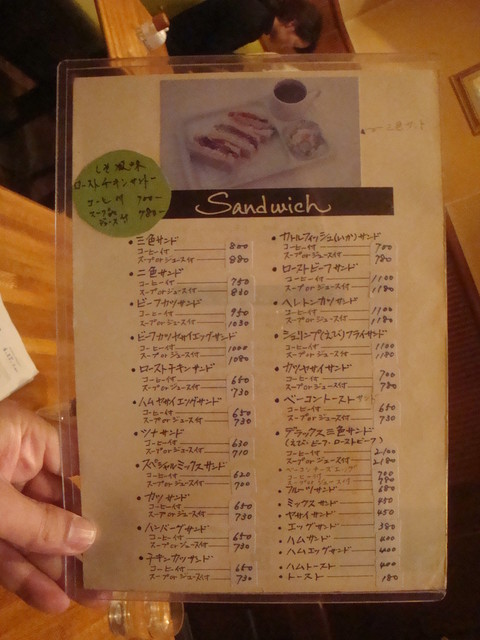 三色サンド
しそ風味
ローストチキンサンド
コーヒー付 700-
スープor
ジュース付 780-
Sandwich
・三色サンド
コーヒー付 800
スープorジュース付 880
・二色サンド
コーヒー付 750
スープorジュース付 830
・ビーフカツサンド
コーヒー付 950
スープorジュース付 1030
・ビーフカツヤサイエッグサンド
コーヒー付 1000
スープorジュース付 1080
・ローストチキンサンド
コーヒー付 650
スープorジュース付 730
・ハムヤサイエッグサンド
コーヒー付 650
スープorジュース付 730
・ツナサンド
コーヒー付 630
スープorジュース付 710
・スペシャルミックスサンド
コーヒー付 620
スープorジュース付 700
・カツサンド
コーヒー付 650
スープorジュース付 730
・ハンバーグサンド
コーヒー付 650
スープorジュース付 730
・チキンカツサンド
コーヒー付 650
スープorジュース付 730
・カトルフィッシュ(いか)サンド
コーヒー付 700
スープorジュース付 780
・ローストビーフサンド
コーヒー付 1100
スープorジュース付 1180
・ヘレトンカツサンド
コーヒー付 1100
スープorジュース付 1180
・シュリンプ(えび)フライサンド
コーヒー付 1100
スープorジュース付 1180
・カツヤサイサンド
コーヒー付 700
スープorジュース付 780
・ベーコントーストサンド
コーヒー付 650
スープorジュース付 730
・デラックス三色サンド
(えび・ビーフ・ローストビーフ)
コーヒー付 2100
スープorジュース付 2180
コーヒー付 700
スープorジュース付 780
・フルーツサンド 680
・ミックスサンド 450
・ヤサイサンド 450
・エッグサンド 380
・ハムサンド 400
・ハムエッグサンド 400
・ハムトースト 400
・トースト 180